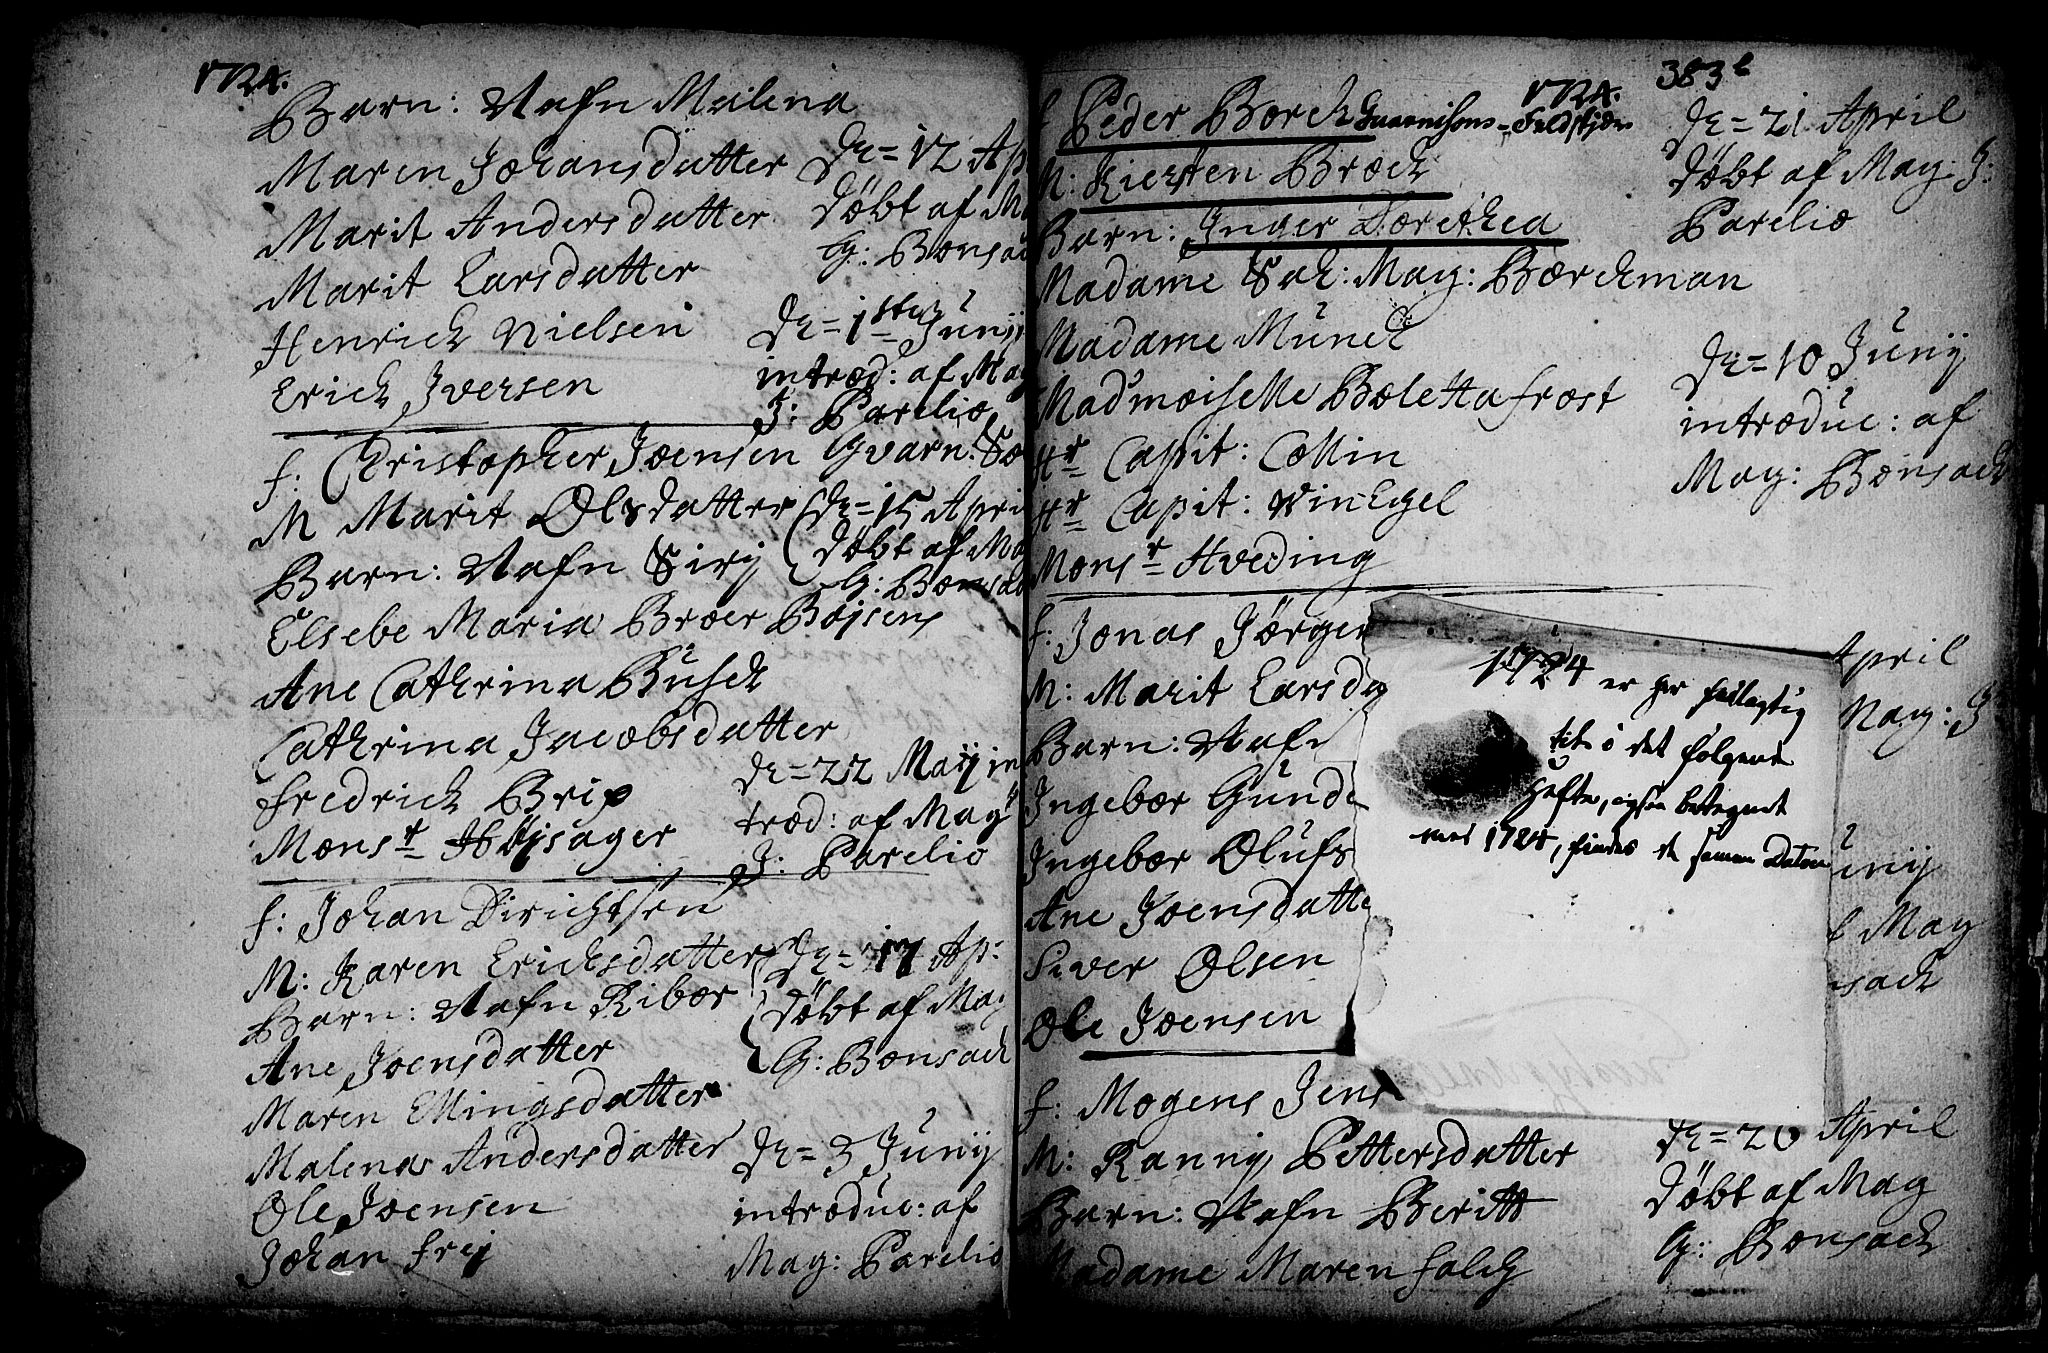 1724.
Barn: Nafn Malena
Maren Johansdatter
Marit Andersdatter
Marit Larsdatter
Henrich Nielsen
Erich Iversen
d= 12 Ap
døbt af Ma
G: Bonsac
d= 1ste Junij
introd: af Mag
J: Parelio
f: Christopher Joensen Gvarn: So
M Marit Olsdatter
Barn: Nafn Sirij
Elsebe Maria Broer Bojsens
Ane Cathrina Busch
Cathrina Jacobsdatter
Fredrich Brix
Monsr Højsager
d= 15 Apri
døbt af Mag
G: Bonsac
d= 22 Maij in
trod: af Mag
J: Parelio
f: Johan Dirichtsen
M: Karen Erichsdatter
Barn: Nafn Ribor
Ane Joensdatter
Maren Ellingsdatter
Malena Andersdatter
Ole Joensen
Johan Frej
d= 17 Ap:
døbt af Mag
G: Bonsach
d= 3 Junij
introduc: af
Mag: Parelio
1724.
383b
f Peder Borch Guarnisons-Feldskjær
M: Kiersten Broch
Barn: Inger Dorethea
Madame Sal: Mag: Borchman
Madame Munch
Madmoiselle Boletta Frost
Hr Capit: Collin
Hr Capit: Vinegel
Monsr Hveding
d= 21 April
døbt af Mag: J:
Parelio
d= 10 Junij
introduc: af
Mag: Bonsach
f: Jonas Jørgen
M: Marit Larsda
Barn: Nafn
Ingebor Gunde
Ingebor Olufs
Ane Joensdatte
Siver Olsen
Ole Joensen
April
Mag: J
unij
f Mag
sach
1724 er her feilagtig
thi i det følgende
Hefte, ogsaa betegnet
med 1724, findes de samme Datoer
f: Mogens Jens
M: Ranny Pettersdatter
Barn: Nafn Beritt
Madame Maren Falch
d= 20 April
døbt af Mag
G: Bonsach